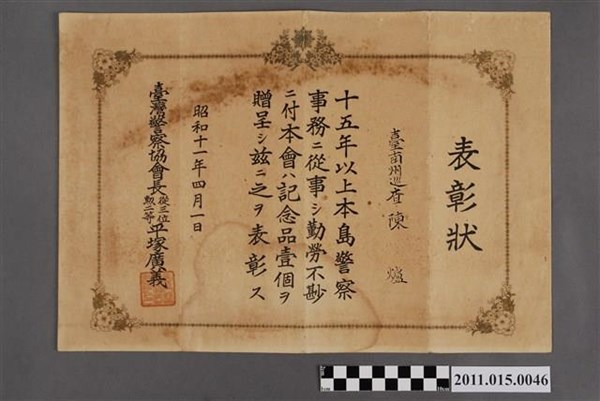 表彰狀
臺南州巡查 陳 爐
十五年以上本島警察
事務ニ從事シ勤勞不尠
ニ付本會ハ記念品壹個ヲ
贈呈シ玆ニ之ヲ表彰ス
昭和十一年四月一日
臺灣警察協會長從三位勳二等平塚廣義
2011.015.0046